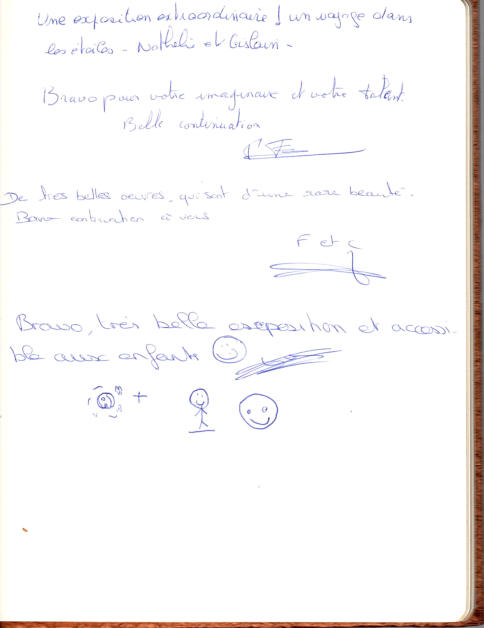 Une exposition extraordinaire ! un voyage dans
les étoiles - Nathalie et Gislain -
Bravo pour votre imaginaire et votre talent.
Belle continuation
De très belles oeuvres, qui sont d'une rare beauté.
Bonne continuation à vous
F et C
Bravo, très belle exposition et accessi-
ble aux enfants
+